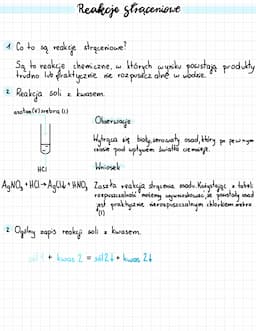 Reakcje strąceniowe
1 Co to są reakcje strąceniowe?
Są to reakcje chemiczne, w których wyniku powstają produkty
trudno lub praktycznie nie rozpuszczalne w wodzie.
2 Reakcja soli z kwasem.
azotan(V) srebra (I)
Obserwacje
Wytrąca się biały, serowaty osad, który po pewnym
czasie pod wpływem światła ciemnieje.
HCl
Wniosek
AgNO₃ + HCl → AgCl↓ + HNO₃
Zaszła reakcja strącania osadu. Korzystając z tabeli
rozpuszczalności możemy wywnioskować, że powstały osad
jest praktycznie nierozpuszczalnym chlorkiem srebra
(I)
2 Ogólny zapis reakcji soli z kwasem.
sól 1 + kwas 2 = sól 2↓ + kwas 2↓